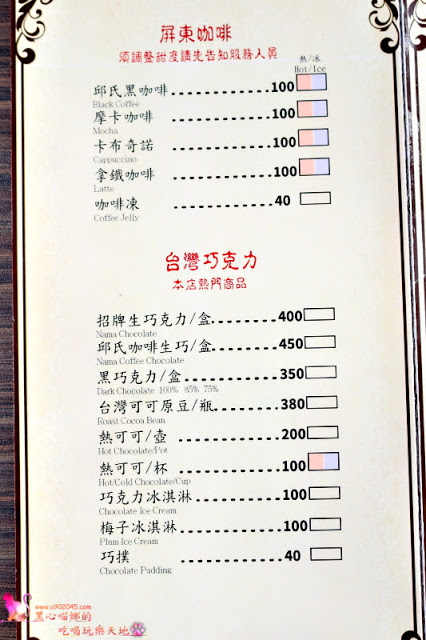 屏東咖啡
須調整甜度請先告知服務人員
熱/冰
Hot/Ice
邱氏黑咖啡 100
Black Coffee
摩卡咖啡 100
Mocha
卡布奇諾 100
Cappuccino
拿鐵咖啡 100
Latte
咖啡凍 40
Coffee Jelly
台灣巧克力
本店熱門商品
招牌生巧克力/盒 400
Nama Chocolate
邱氏咖啡生巧/盒 450
Nama Coffee Chocolate
黑巧克力/盒 350
Dark Chocolate 100% 85% 75%
台灣可可原豆/瓶 380
Roast Cocoa Bean
熱可可/壺 200
Hot Chocolate/Pot
熱可可/杯 100
Hot/Cold Chocolate/Cup
巧克力冰淇淋 100
Chocolate Ice Cream
梅子冰淇淋 100
Plum Ice Cream
巧撲 40
Chocolate Pudding
www.c902045.com
黑心喵娜的
吃喝玩樂天地